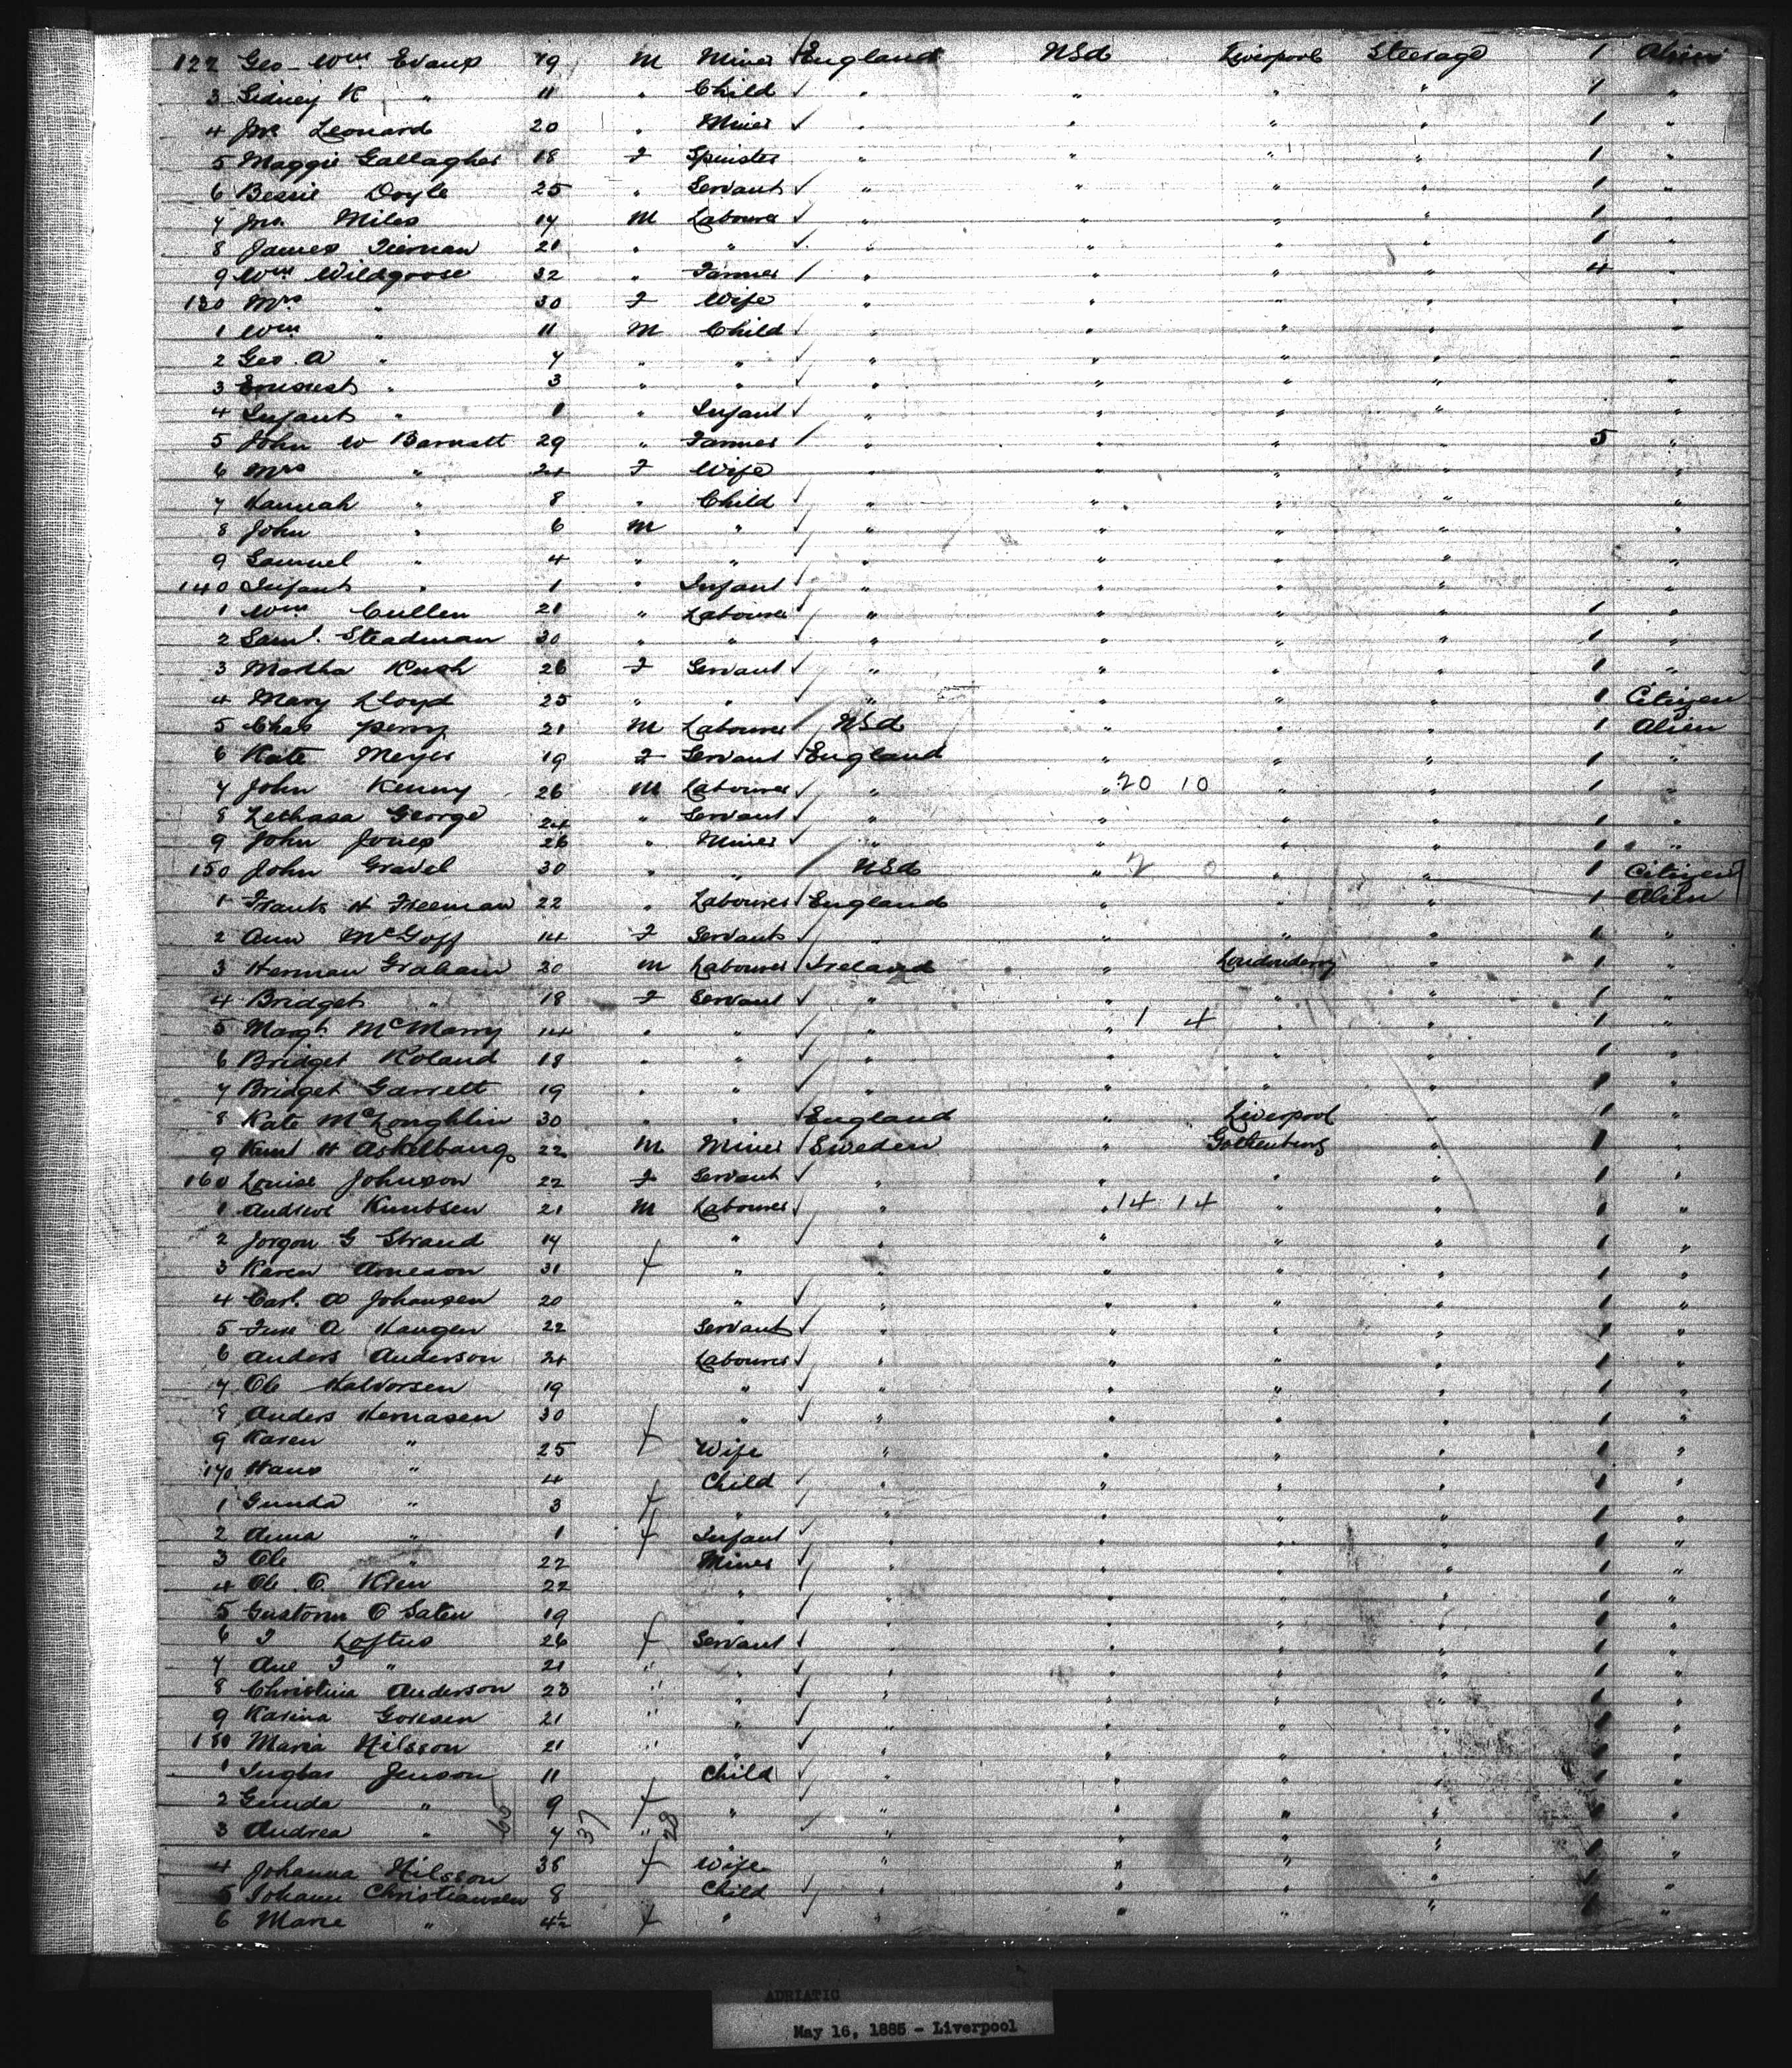 122 Geo Wm Evans 19 M Miner England USA Liverpool Steerage 1 Alien
3 Sidney K " 11 " Child " " " " 1 "
4 Jno Leonard 20 " Miner " " " " 1 "
5 Maggie Gallagher 18 F Spinster " " " " 1 "
6 Bessie Doyle 25 " Servant " " " " 1 "
7 Jno Miles 17 M Labourer " " " " 1 "
8 James Tiernan 21 " " " " " " 1 "
9 Wm Wildgoose 32 " Farmer " " " " 4 "
130 Mrs " 30 F Wife " " " " "
1 Wm " 11 M Child " " " " "
2 Geo. A " 7 " " " " " " "
3 Ernest " 3 " " " " " " "
4 Infant " 1 " Infant " " " " "
5 John W Barnett 29 " Farmer " " " " 5 "
6 Mrs " 24 F Wife " " " " "
7 Hannah " 8 " Child " " " " "
8 John " 6 M " " " " " "
9 Samuel " 4 " " " " " " "
140 Infant " 1 " Infant " " " " "
1 Wm Cullen 21 " Labourer " " " " 1 "
2 Saml. Steadman 30 " " " " " " 1 "
3 Martha Rush 26 F Servant " " " " 1 "
4 Mary Lloyd 25 " " " " " " 1 Citizen
5 Chas Perry 21 M Labourer USA " " " 1 Alien
6 Kate Meyer 19 F Servant England " " " 1 "
7 John Kenny 26 M Labourer " " 20 10 " " 1 "
8 George 24 " Servant " " " " 1 "
9 John Jones 26 " Miner " " " " 1 "
150 John Gravel 30 " " USA " " " 1 Citizen
1 Frank H Freeman 22 " Labourer England " " " 1 Alien
2 Ann McGoff 14 F Servant " " " " 1 "
3 Herman Graham 20 M Labourer Ireland " Londonderry " 1 "
4 Bridget " 18 F Servant " " " " 1 "
5 Margt 14 " " " " 1 4 " " 1 "
6 Bridget Roland 18 " " " " " " 1 "
7 Bridget Garrett 19 " " " " " " 1 "
8 Kate McLoughlin 30 " " England " Liverpool " 1 "
9 H 22 M Miner Sweden " Gothenburg " 1 "
160 Louise Johnson 22 F Servant " " " " 1 "
1 Andrew Knutsen 21 M Labourer " " 14 14 " " 1 "
2 Jorgon G Strand 17 " " " " " 1 "
3 Karen Arneson 31 f " " " " " 1 "
4 Carl A Johansen 20 " " " " " 1 "
5 A Haugen 22 Servant " " " " 1 "
6 Anders Anderson 24 Labourer " " " " 1 "
7 Ole Halvorsen 19 " " " " " 1 "
8 Anders 30 " " " " " 1 "
9 Karen " 25 f Wife " " " " 1 "
170 Hans " 4 Child " " " " 1 "
1 Gunda " 3 f " " " " " 1 "
2 Anna " 1 f Infant " " " " 1 "
3 Ole " 22 Miner " " " " 1 "
4 Ole O. 22 " " " " " 1 "
5 O 19 " " " " " 1 "
6 Loftus 26 f Servant " " " " 1 "
7 " 21 " " " " " " 1 "
8 Christina Anderson 23 " " " " " " 1 "
9 Karina 21 " " " " " " 1 "
180 Maria Nilsson 21 " " " " " " 1 "
1 Jenson 11 Child " " " " 1 "
2 Gunda " 9 f " " " " " 1 "
3 Andrea " 7 " " " " " " 1 "
60 37 28
4 Johanna Nilsson 38 f Wife " " " " 1 "
5 Johann Christiansen 8 Child " " " " 1 "
6 Marie " 4½ f " " " " " 1 "
ADRIATIC
May 16, 1885 - Liverpool